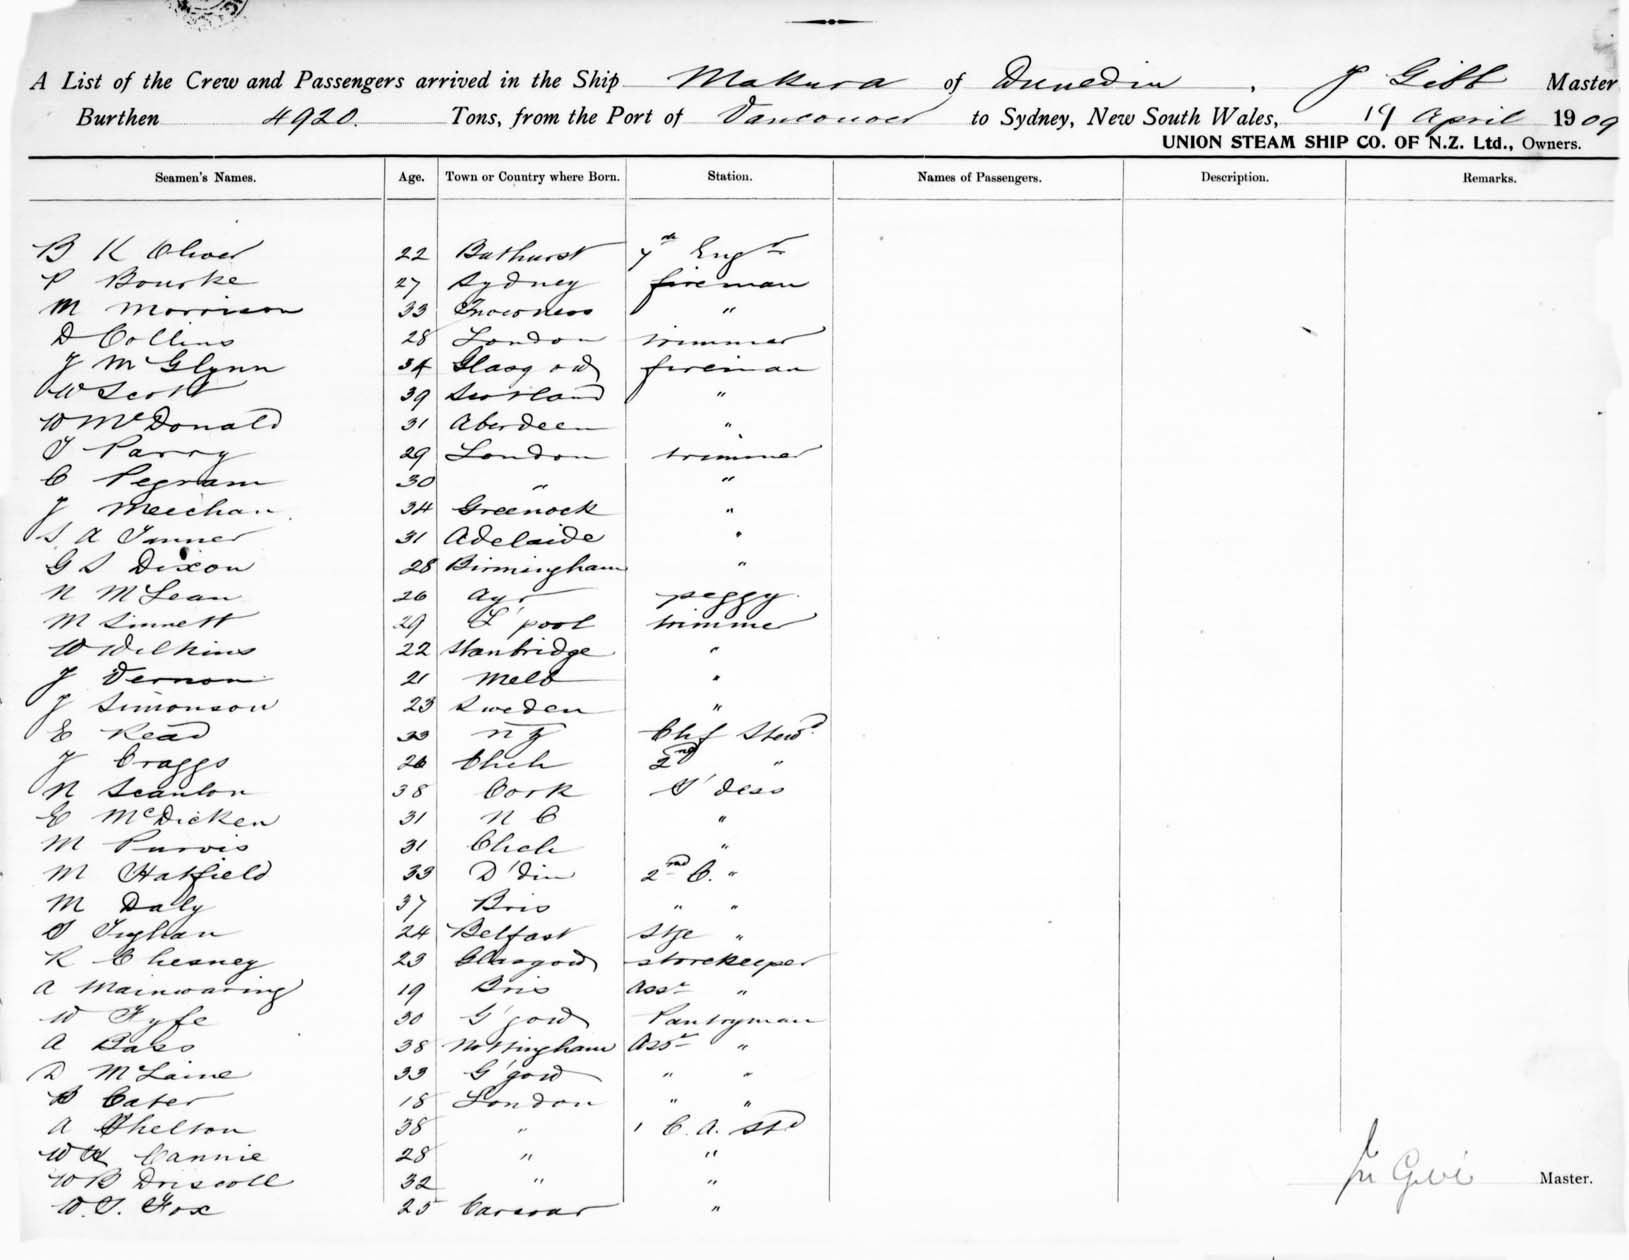 A List of the Crew and Passengers arrived in the Ship Makura of Dunedin, J Gibb Master
Burthen 4920. Tons, from the Port of Vancouver to Sydney, New South Wales, 19 April 1909
UNION STEAM SHIP CO. OF N.Z. Ltd., Owners.
Seamen's Names. Age. Town or Country where Born. Station. Names of Passengers. Description. Remarks.
B K Oliver 22 Bathurst 7th Engr
P Bourke 27 Sydney fireman
M Morrison 33 Inverness "
D Collins 28 London trimmer
J McGlynn 34 Glasgow fireman
W Scott 39 Scotland "
W McDonald 31 Aberdeen "
T Parry 29 London trimmer
C Pegram 30 " "
J Meechan 34 Greenock "
S A Turner 31 Adelaide "
G S Dixon 28 Birmingham "
N McLean 26 Ayr peggy
M Sinnett 29 L'pool trimmer
W Wilkins 22 Stanbridge "
J Vernon 21 Melb "
J Simonson 23 Sweden "
E Read 33 NZ Chf Stewd
J Craggs 26 Chch 2nd "
N Scanlon 38 Cork S'dess
E McDicken 31 N C "
M Purvis 31 Chch "
M Hatfield 33 D'din 2nd C. "
M Daly 37 Bris " "
S 24 Belfast Stge "
R Chesney 23 Glasgow storekeeper
A Mainwaring 19 Bris Asst "
W Fyfe 30 G'gow Pantryman
A Bass 38 Nottingham Asst "
D McLaine 33 G'gow " "
B Cater 18 London " "
A Shelton 38 " 1 C. A. Std
W H Cannie 28 " "
W B Driscoll 32 " "
W. T. Fox 25 "
Jn Gibb Master.